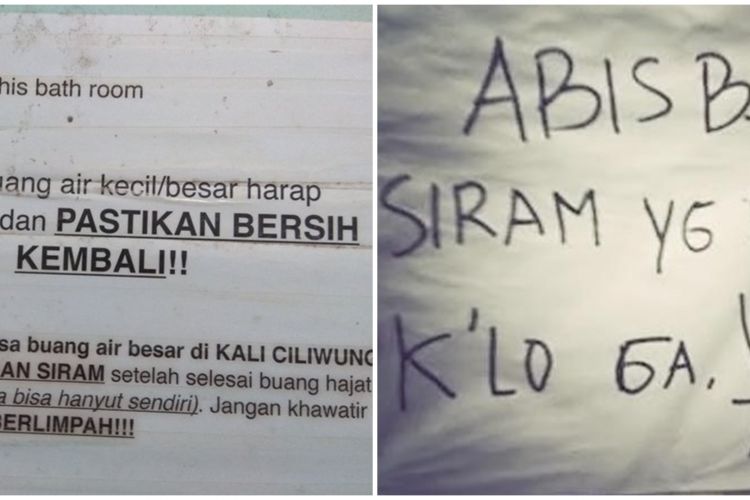 his bath room
uang air kecil/besar harap
dan PASTIKAN BERSIH
KEMBALI!!
sa buang air besar di KALI CILIWUNG
AN SIRAM setelah selesai buang hajat
a bisa hanyut sendiri). Jangan khawatir
BERLIMPAH!!!
ABIS B
SIRAM YG
K'LO GA.